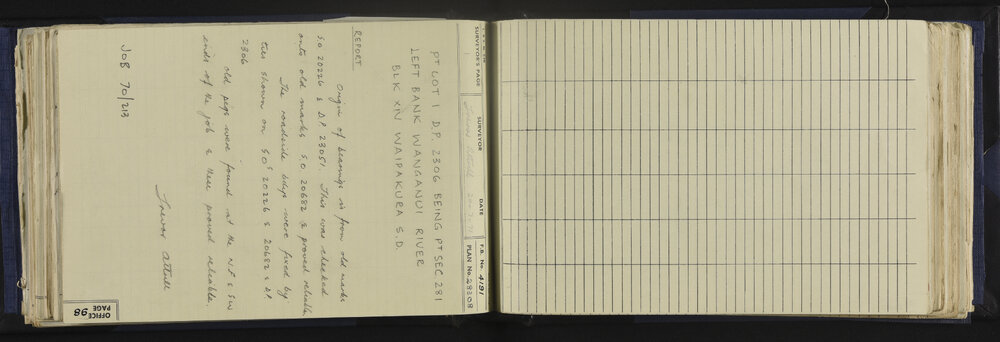 SURVEYOR'S PAGE
SURVEYOR
DATE
F.B. No. 4191
PLAN No. 28308
Trevor Attrill
PT LOT 1 D.P. 2306 BEING PT SEC. 281
LEFT BANK WANGANUI RIVER
BLK XIV WAIPAKURA S.D.
REPORT
Origin of bearings is from old marks
S.O. 20226 & D.P. 23051. This was checked
onto old marks S.O. 20682 & proved reliable.
The roadside bdys were fixed by
ties shown on S.Os 20226 & 20682 & D.P.
2306
old pegs were found at the N.E & S.W
ends of the job & these proved reliable.
Trevor Attrill
JOB 70/213
OFFICE PAGE 98